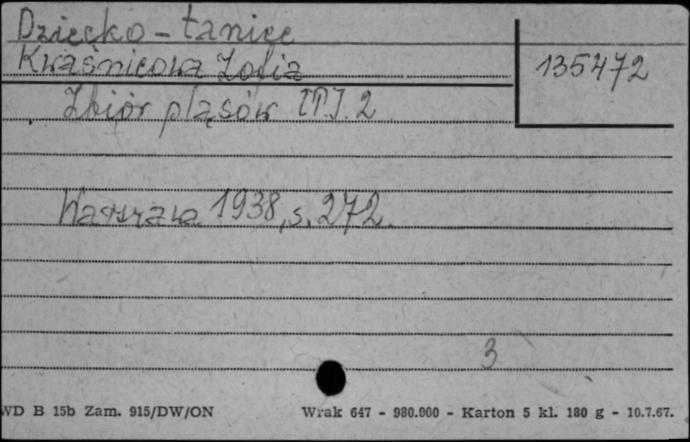 Dziecko - taniec
Kwaśnicowa Zofia
135472
Zbiór pląsów [T]. 2
Warszawa 1938, s. 272.
3
WD B 15b Zam. 915/DW/ON
Wrak 647 - 980.000 - Karton 5 kl. 180 g - 10.7.67.